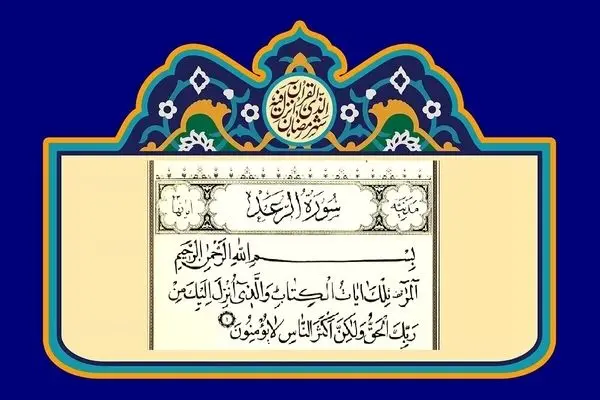 شهر رمضان الذی انزل فیه القرآن
مدنية سُورَةُ الرَّعَدِ
بِسْمِ اللهِ الرَّحْمٰنِ الرَّحِيمِ
الٓمٓرٰ تِلْكَ اٰيَاتُ الْكِتَابِ وَالَّذِىٓ اُنْزِلَ اِلَيْكَ مِنْ
رَبِّكَ الْحَقُّ وَلٰكِنَّ اَكْثَرَ النَّاسِ لَا يُؤْمِنُونَ ١